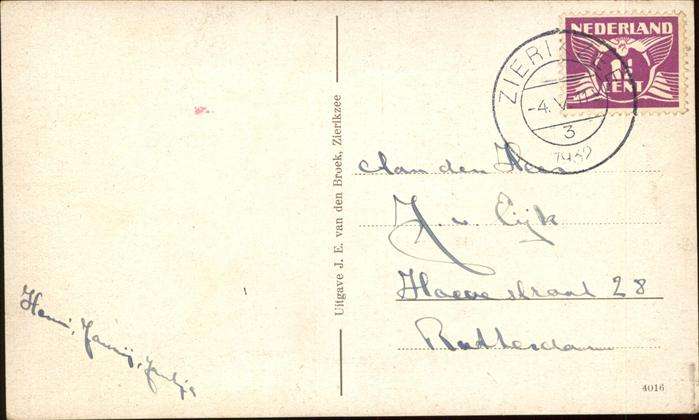 NEDERLAND
1½
CENT
ZIERIKZEE
-4.V
3
1932
Uitgave J. E. van den Broek, Zierikzee
Aan den Heer
J. v. Eijk
Hoevestraat 28
Rotterdam
Henni,
4016